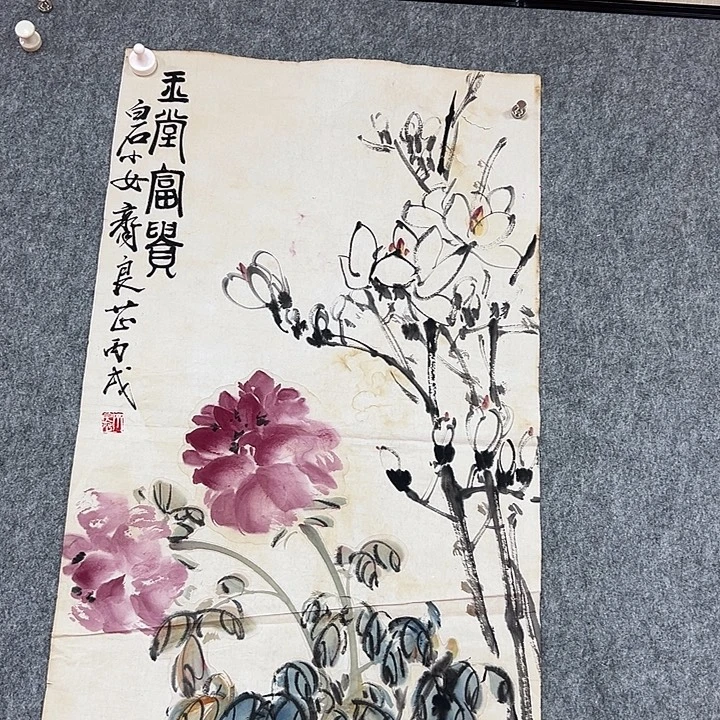 玉堂富貴
白石小女齊良芷丙戌